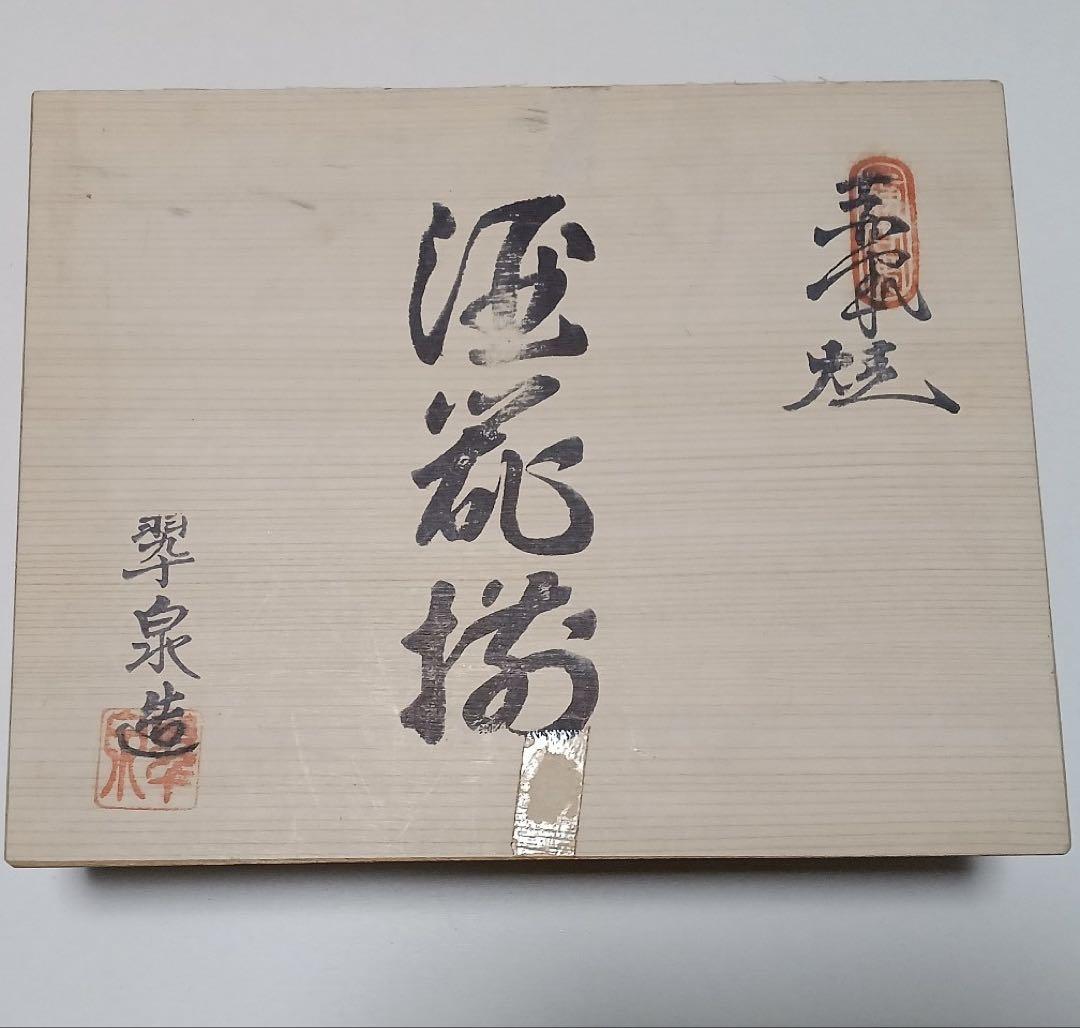 焼
酒器揃
翠泉造